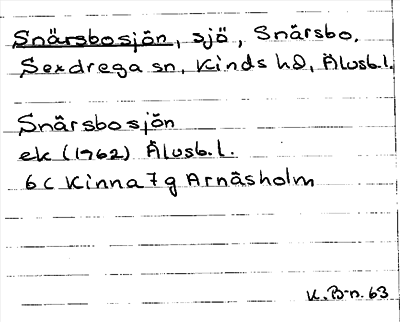 Snärsbosjön, sjö, Snärsbo.
Sexdrega sn, Kinds hd, Älvsb.l.
Snärsbosjön
ek (1962) Älvsb.l.
6c Kinna 7g Arnäsholm
K. B-n. 63